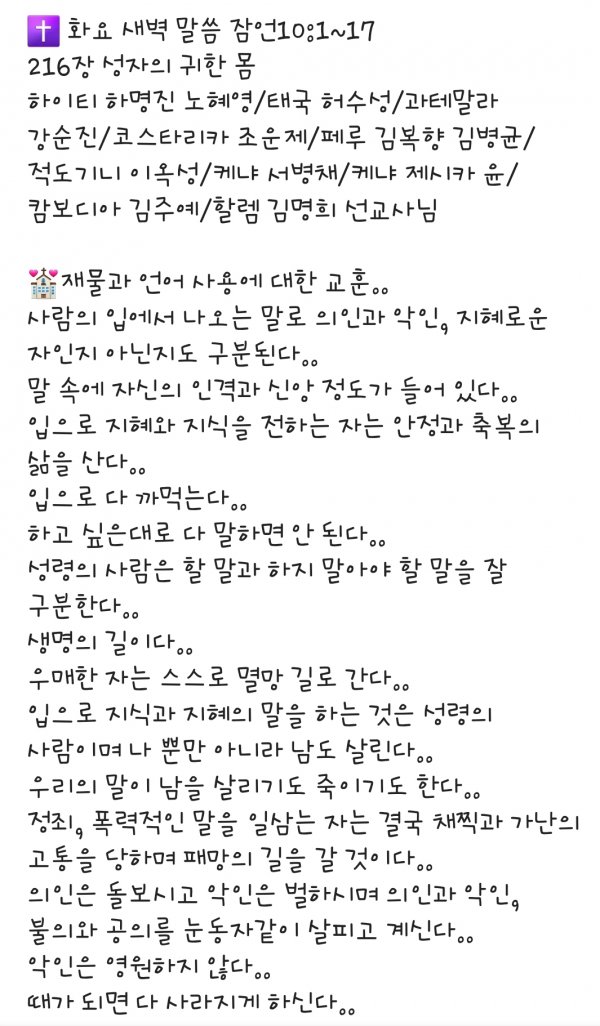 ✝️ 화요 새벽 말씀 잠언10:1~17
216장 성자의 귀한 몸
하이티 하명진 노혜영/태국 허수성/과테말라
강순진/코스타리카 조운제/페루 김복향 김병균/
적도기니 이옥성/케냐 서병채/케냐 제시카 윤/
캄보디아 김주예/할렘 김명희 선교사님
💒재물과 언어 사용에 대한 교훈..
사람의 입에서 나오는 말로 의인과 악인, 지혜로운
자인지 아닌지도 구분된다..
말 속에 자신의 인격과 신앙 정도가 들어 있다..
입으로 지혜와 지식을 전하는 자는 안정과 축복의
삶을 산다..
입으로 다 까먹는다..
하고 싶은대로 다 말하면 안 된다..
성령의 사람은 할 말과 하지 말아야 할 말을 잘
구분한다..
생명의 길이다..
우매한 자는 스스로 멸망 길로 간다..
입으로 지식과 지혜의 말을 하는 것은 성령의
사람이며 나 뿐만 아니라 남도 살린다..
우리의 말이 남을 살리기도 죽이기도 한다..
정죄, 폭력적인 말을 일삼는 자는 결국 채찍과 가난의
고통을 당하며 패망의 길을 갈 것이다..
의인은 돌보시고 악인은 벌하시며 의인과 악인,
불의와 공의를 눈동자같이 살피고 계신다..
악인은 영원하지 않다..
때가 되면 다 사라지게 하신다..